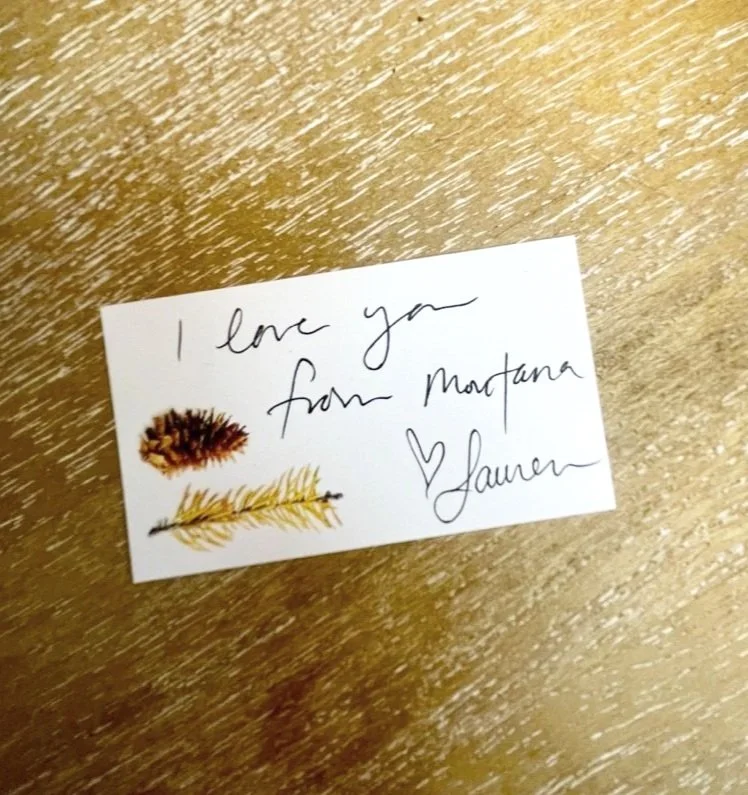 I love you
from Montana
♡ Lauren